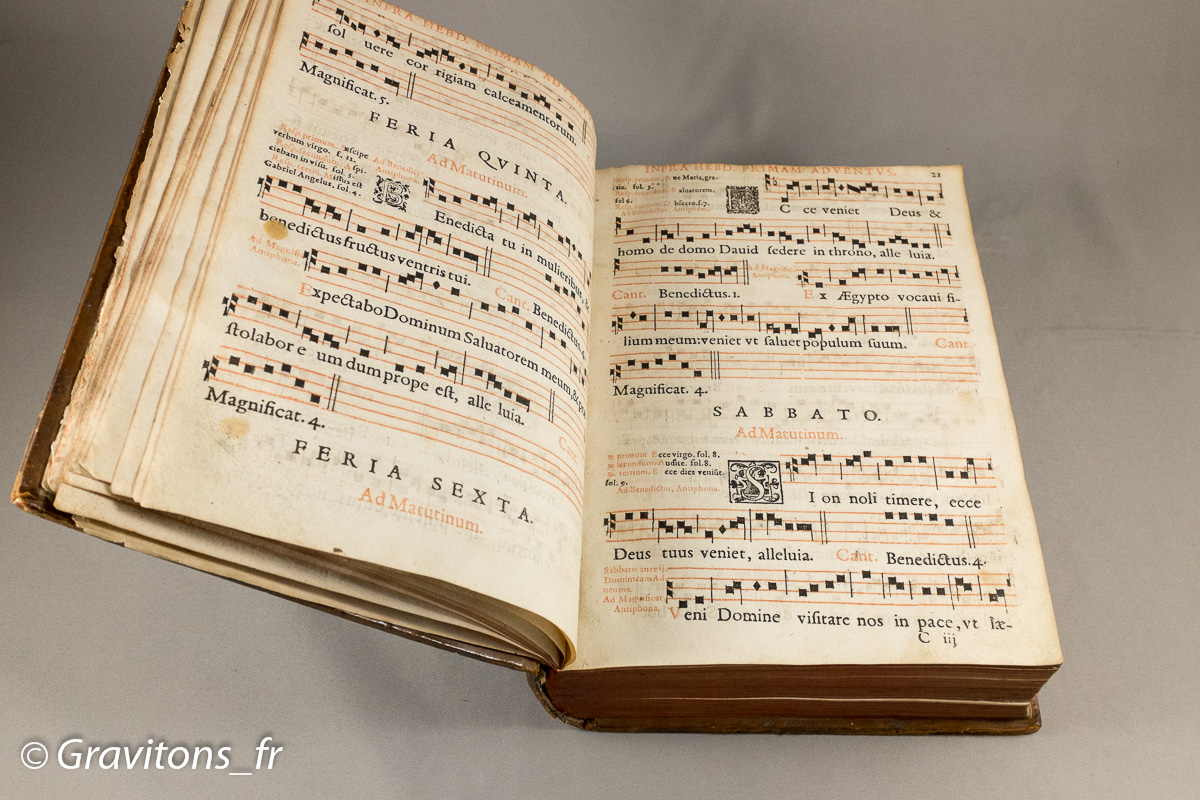 INFRA HEBD. PRIMAM AD
sol uere cor rigiam calceamentorum.
Magnificat. 5.
FERIA QVINTA.
Ad Matutinum.
Resp. primum.
verbum virgo. f. 12.
ciebam in visu. fol. 5.
Gabriel Angelus. fol. 4.
Ad Benedic-
Antiphona.
BEnedicta tu in mulieribus, &
benedictus fructus ventris tui. Cant. Benedictus. 4.
Ad Magnific.
Antiphona.
Expectabo Dominum Saluatorem meum, & præ
stolabor e um dum prope est, alle luia.
Magnificat. 4.
FERIA SEXTA.
Ad Matutinum.
INFRA HEBD. PRIMAM ADVENTVS. 21
ne Maria, gra-
tia. fol. 5.
aluatorem.
fol 6.
bsecro. f. 7.
Ad Benedictus, Antiphona.
EC ce veniet Deus &
homo de domo Dauid sedere in throno, alle luia.
Ad Magnific.
Antiphona.
Cant. Benedictus. 1. Ex Ægypto vocaui fi-
lium meum: veniet vt saluet populum suum. Cant.
Magnificat. 4.
SABBATO.
Ad Matutinum.
primum Ecce virgo. fol. 8.
secundum Audite. fol. 8.
tertium. Ecce dies veniüt.
fol. 9.
Ad Benedictus, Antiphona.
SI on noli timere, ecce
Deus tuus veniet, alleluia. Cant. Benedictus. 4.
Sabbato ante ij.
Dominicam Ad
uentus.
Ad Magnificat
Antiphona.
Veni Domine visitare nos in pace, vt læ-
C iij
© Gravitons_fr